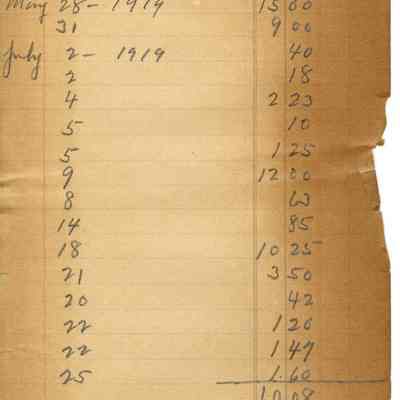 May 28 - 1919 15 00
31 9 00
July 2 - 1919 40
2 18
4 2 23
5 10
5 1 25
9 12 00
8 63
14 85
18 10 25
21 3 50
20 42
22 1 20
22 1 47
25 1.60